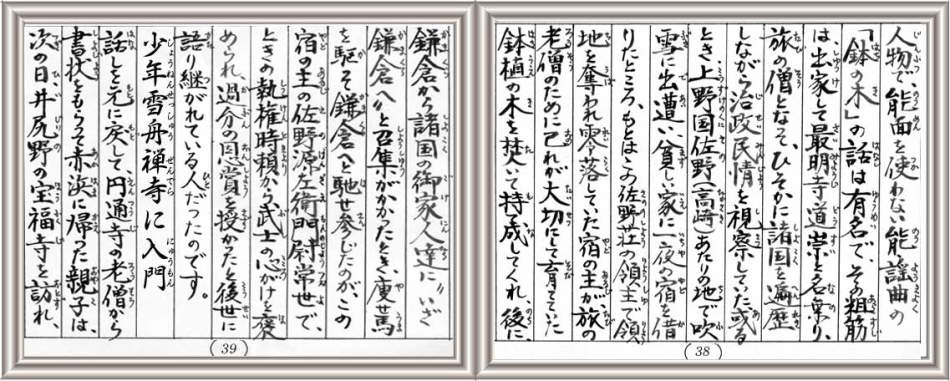 人物で、能面を使わない能、謡曲の
「鉢の木」の話は有名で、その粗筋
は出家して最明寺道崇と名乗り、
旅の僧となって、ひそかに諸国を遍歴
しながら治政民情を視察していた或る
とき、上野国佐野(高崎)あたりの地で吹
雪に出遭い、貧しい家に一夜の宿を借
りたところ、もとはこの佐野荘の領主で領
地を奪われ零落していた宿の主が旅の
老僧のために己れが大切にして育てていた
鉢植の木を焚いて持成してくれ、後に、
(38)
鎌倉から諸国の御家人達に〝いざ
鎌倉へ〟と召集がかかったとき、痩せ馬
を駆って鎌倉へと馳せ参じたのが、この
宿の主の佐野源左衛門尉常世で、
ときの執権時頼から武士の心がけを褒
められ、過分の恩賞を授かったと後世に
語り継がれている人だったのです。
少年雪舟禅寺に入門
話しを元に戻して、円通寺の老僧から
書状をもらって赤浜に帰った親子は、
次の日井尻野の宝福寺を訪れ、
(39)